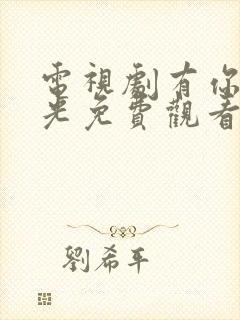 電視劇有你
光免費觀看
劉希平